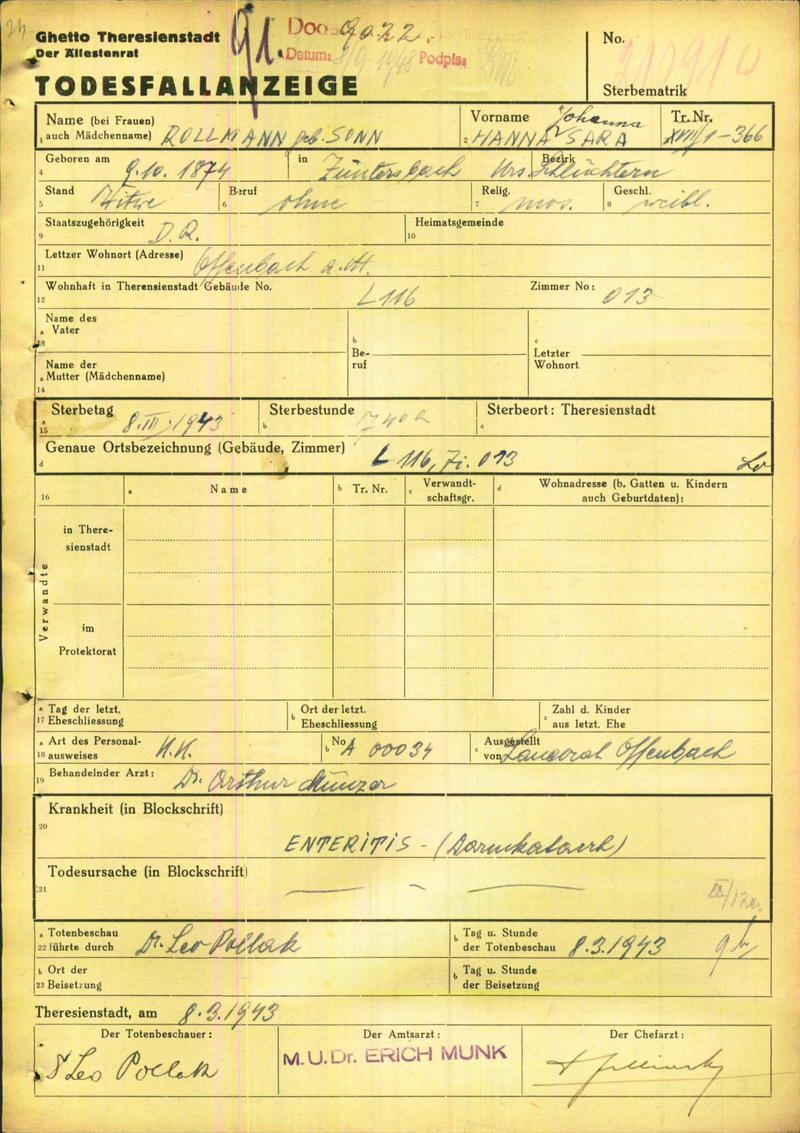 Ghetto Theresienstadt
Der Ältestenrat
91.
Doo 9022.
Datum: Podpis:
No.
TODESFALLANZEIGE
Sterbematrik
Name (bei Frauen) Vorname Johanna Tr. Nr.
1 auch Mädchenname) ROLLMANN geb. SONN 2 HANNA SARA XIII/1-366
Geboren am 9.10. 1874 in Züntersbach Bezirk Krs. Schlüchtern
4
Stand Witwe Beruf ohne Relig. mos. Geschl. weibl.
5 6 7 8
Staatszugehörigkeit D.R. Heimatsgemeinde
9 10
Lettzer Wohnort (Adresse) Offenbach a. M.
11
Wohnhaft in Therensienstadt Gebäude No. L 116 Zimmer No: 013
12
Name des
a Vater b c
13 Be- Letzter
Name der ruf Wohnort
a Mutter (Mädchenname)
14
Sterbetag 8. III. 1943 Sterbestunde 740 Sterbeort: Theresienstadt
a 15 b c
Genaue Ortsbezeichnung (Gebäude, Zimmer) L 116, Zi. 013
d
16 a Name b Tr. Nr. c Verwandt- d Wohnadresse (b. Gatten u. Kindern
schaftsgr. auch Geburtdaten):
in There-
sienstadt
Verwandte
im
Protektorat
a Tag der letzt. b Ort der letzt. c Zahl d. Kinder
17 Eheschliessung Eheschliessung aus letzt. Ehe
a Art des Personal- K.K. b No A 00034 c Ausgestellt
18 ausweises von Landrat Offenbach
19 Behandelnder Arzt: Dr. Arthur Münzer
Krankheit (in Blockschrift)
20
ENTERITIS - (Darmkatarrh)
Todesursache (in Blockschrift)
21
a Totenbeschau b Tag u. Stunde
22 führte durch Dr. Leo Pollak der Totenbeschau 8.3.1943 9 h
b Ort der b Tag u. Stunde
23 Beisetzung der Beisetzung
Theresienstadt, am 8.3.1943
Der Totenbeschauer: Der Amtsarzt: Der Chefarzt:
Leo Pollak M.U.Dr. ERICH MUNK